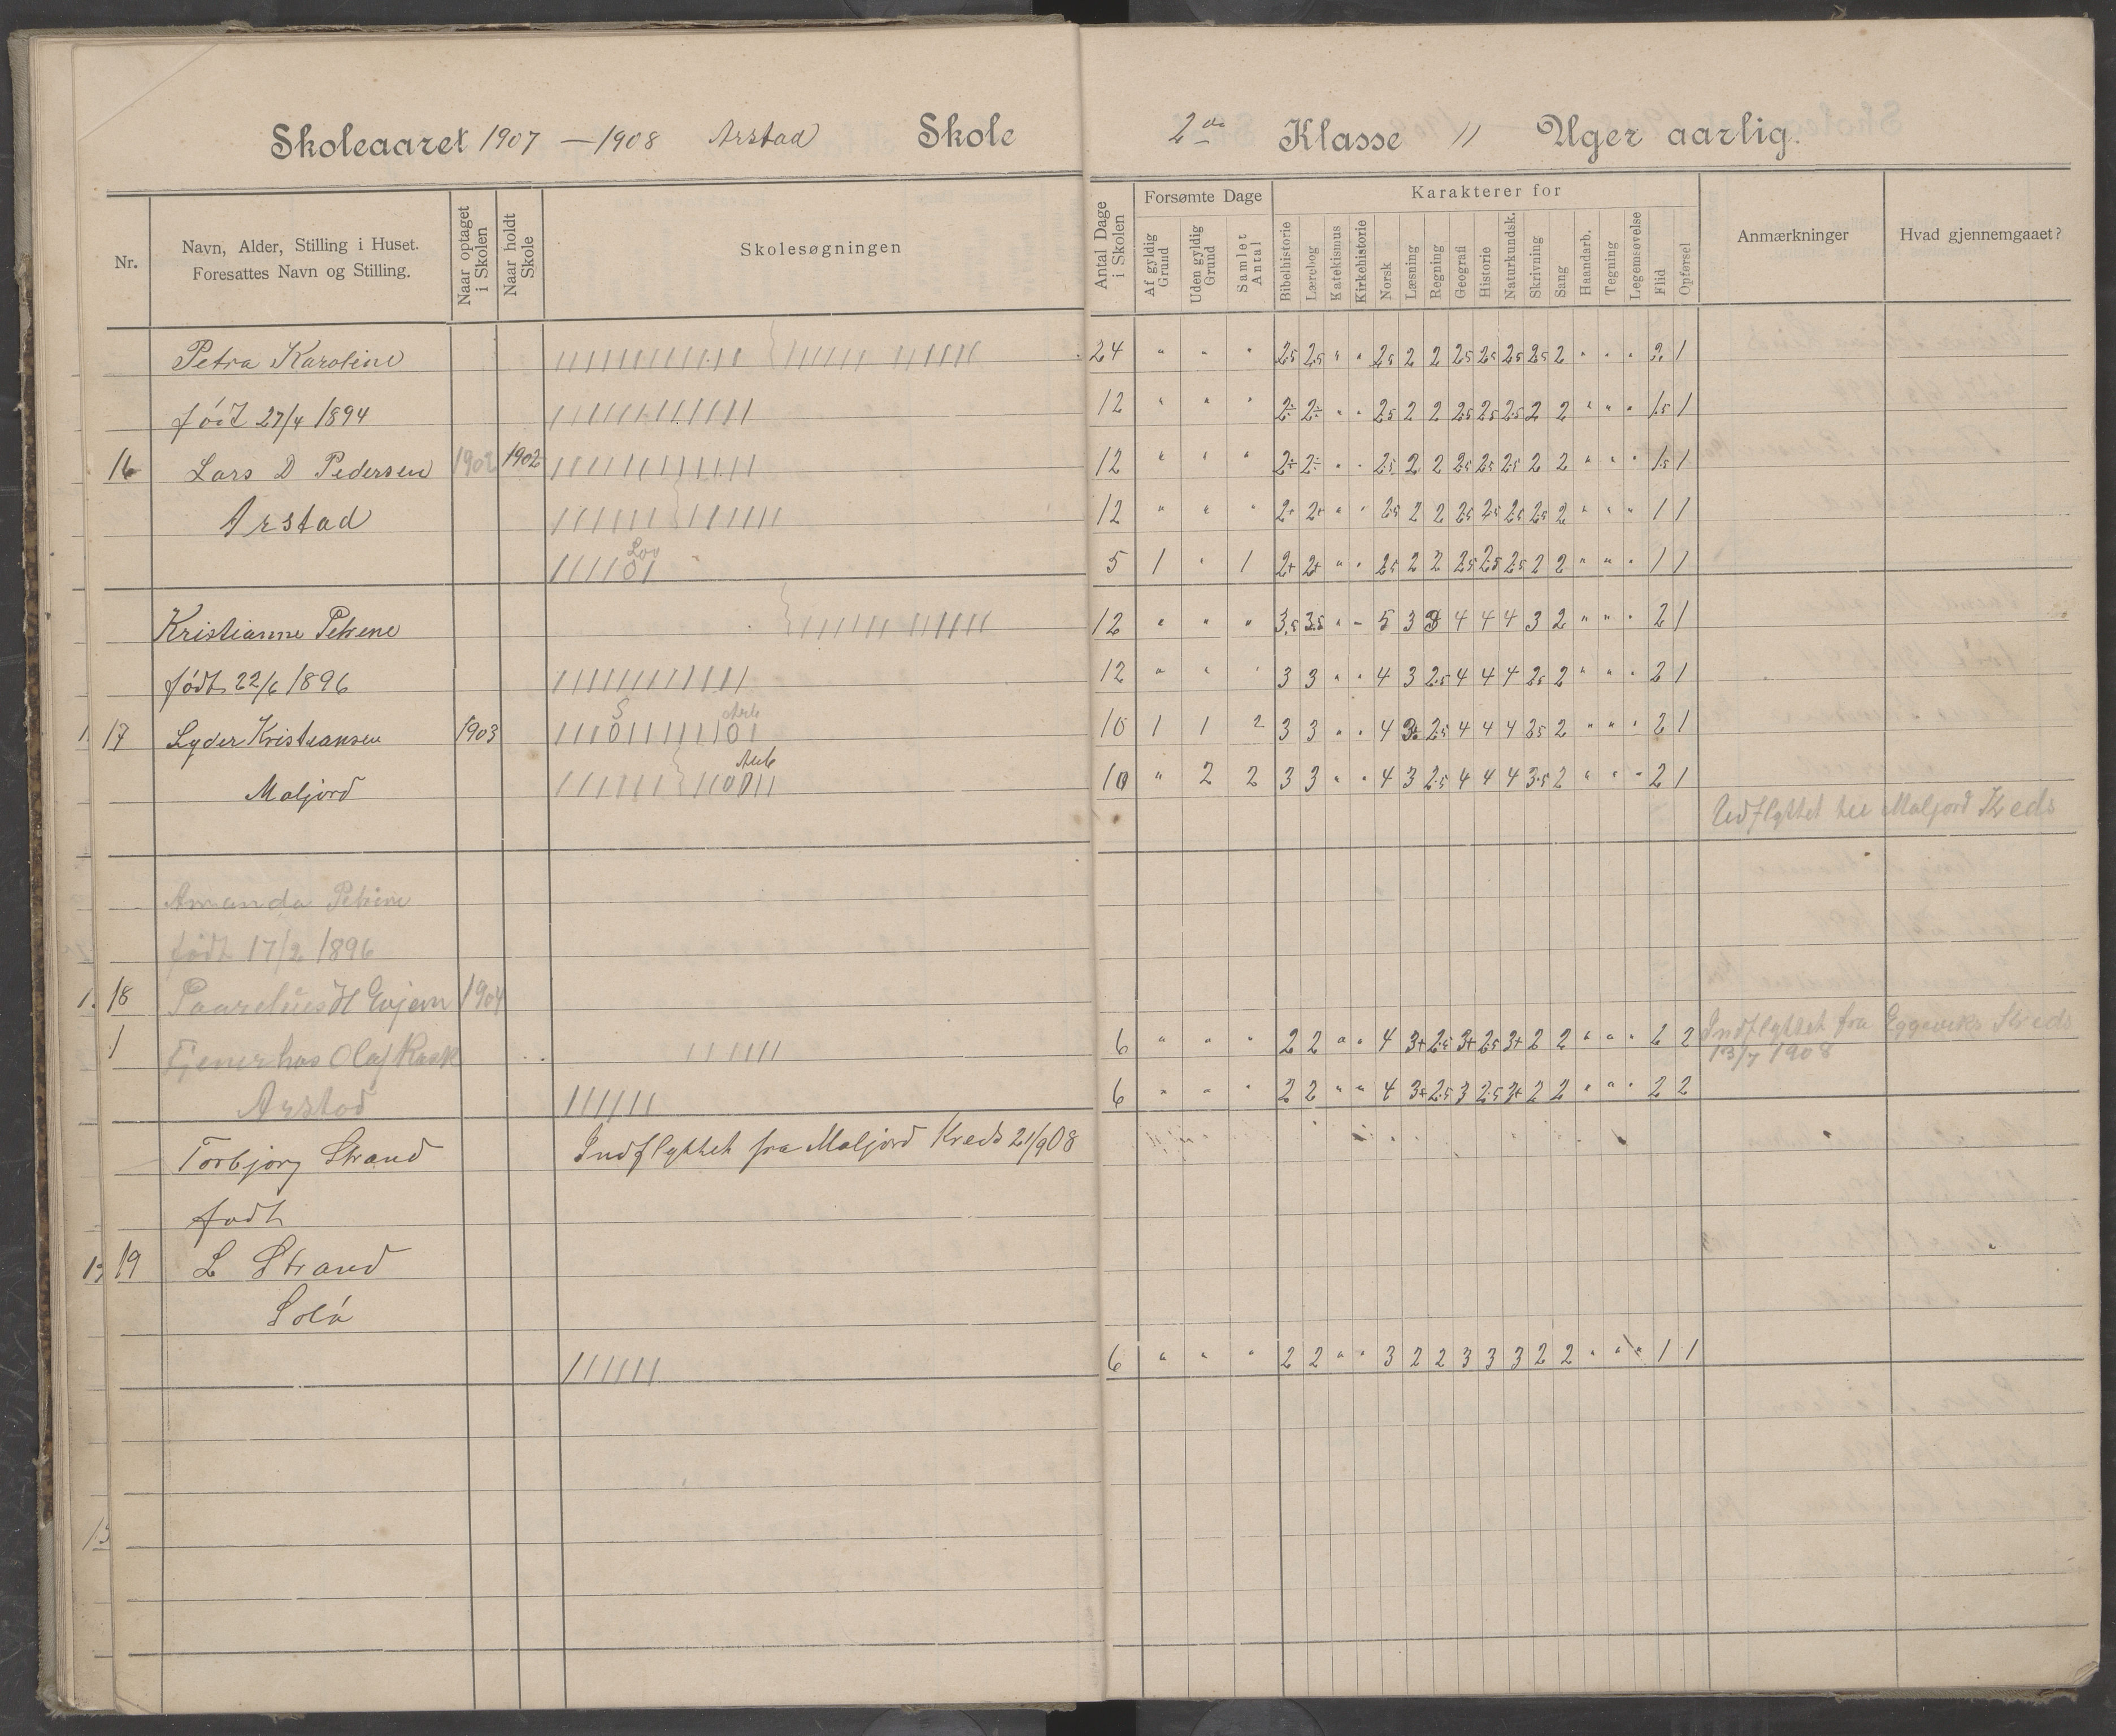 Skoleaaret 1907 — 1908 Arstad Skole 2den Klasse 11 Uger aarlig.
Nr. Navn, Alder, Stilling i Huset. Foresattes Navn og Stilling. Naar optaget i Skolen Naar holdt Skole Skolesøgningen Antal Dage i Skolen Forsømte Dage Af gyldig Grund Uden gyldig Grund Samlet Antal Karakterer for Bibelhistorie Lærebog Katekismus Kirkehistorie Norsk Læsning Regning Geografi Historie Naturkundsk. Skrivning Sang Haandarb. Tegning Legemsøvelse Flid Opførsel Anmærkninger Hvad gjennemgaaet?
Petra Karoline 24 " " " 2.5 2.5 " " 2.5 2 2 2.5 2.5 2.5 2.5 2 " " " 2 1
født 27/4 1894 12 " " " 2÷ 2÷ " " 2.5 2 2 2.5 2.5 2.5 2 2 " " " 1.5 1
16 Lars D Pedersen 1902 1902 12 " " " 2÷ 2÷ " " 2.5 2 2 2.5 2.5 2.5 2 2 " " " 1.5 1
Arstad 12 " " " 2+ 2+ " " 2.5 2 2 2.5 2.5 2.5 2.5 2 " " " 1 1
Lov 5 1 " 1 2+ 2+ " " 2.5 2 2 2.5 2.5 2.5 2 2 " " " 1 1
Kristianne Petrene 12 " " " 3.5 3.5 " - 5 3 3 4 4 4 3 2 " " " 2 1
født 22/6 1896 12 " " " 3 3 " " 4 3 2.5 4 4 4 2.5 2 " " " 2 1
17 Lyder Kristiansen 1903 S Arb 10 1 1 2 3 3 " " 4 3 2.5 4 4 4 3.5 2 " " " 2 1
Maljord Arb 10 " 2 2 3 3 " " 4 3 2.5 4 4 4 3.5 2 " " " 2 1
Udflyttet til Maljord Kreds
Amanda Petrine
født 17/2 1896
18 H Evjem 1904
1 Tjener hos Olaf Rask 6 " " " 2 2 " " 4 3+ 2.5 3+ 2.5 3+ 2 2 " " " 2 2 Indflyttet fra Eggeviks Kreds
13/7 1908
Arstad 6 " " " 2 2 " " 4 3+ 2.5 3 2.5 3+ 2 2 " " " 2 2
Torbjorg Strand Indflyttet fra Maljord Kreds 21/9 08
født
19 L Strand
Solø
6 " " " 2 2 " " 3 2 2 3 3 3 2 2 " " " 1 1